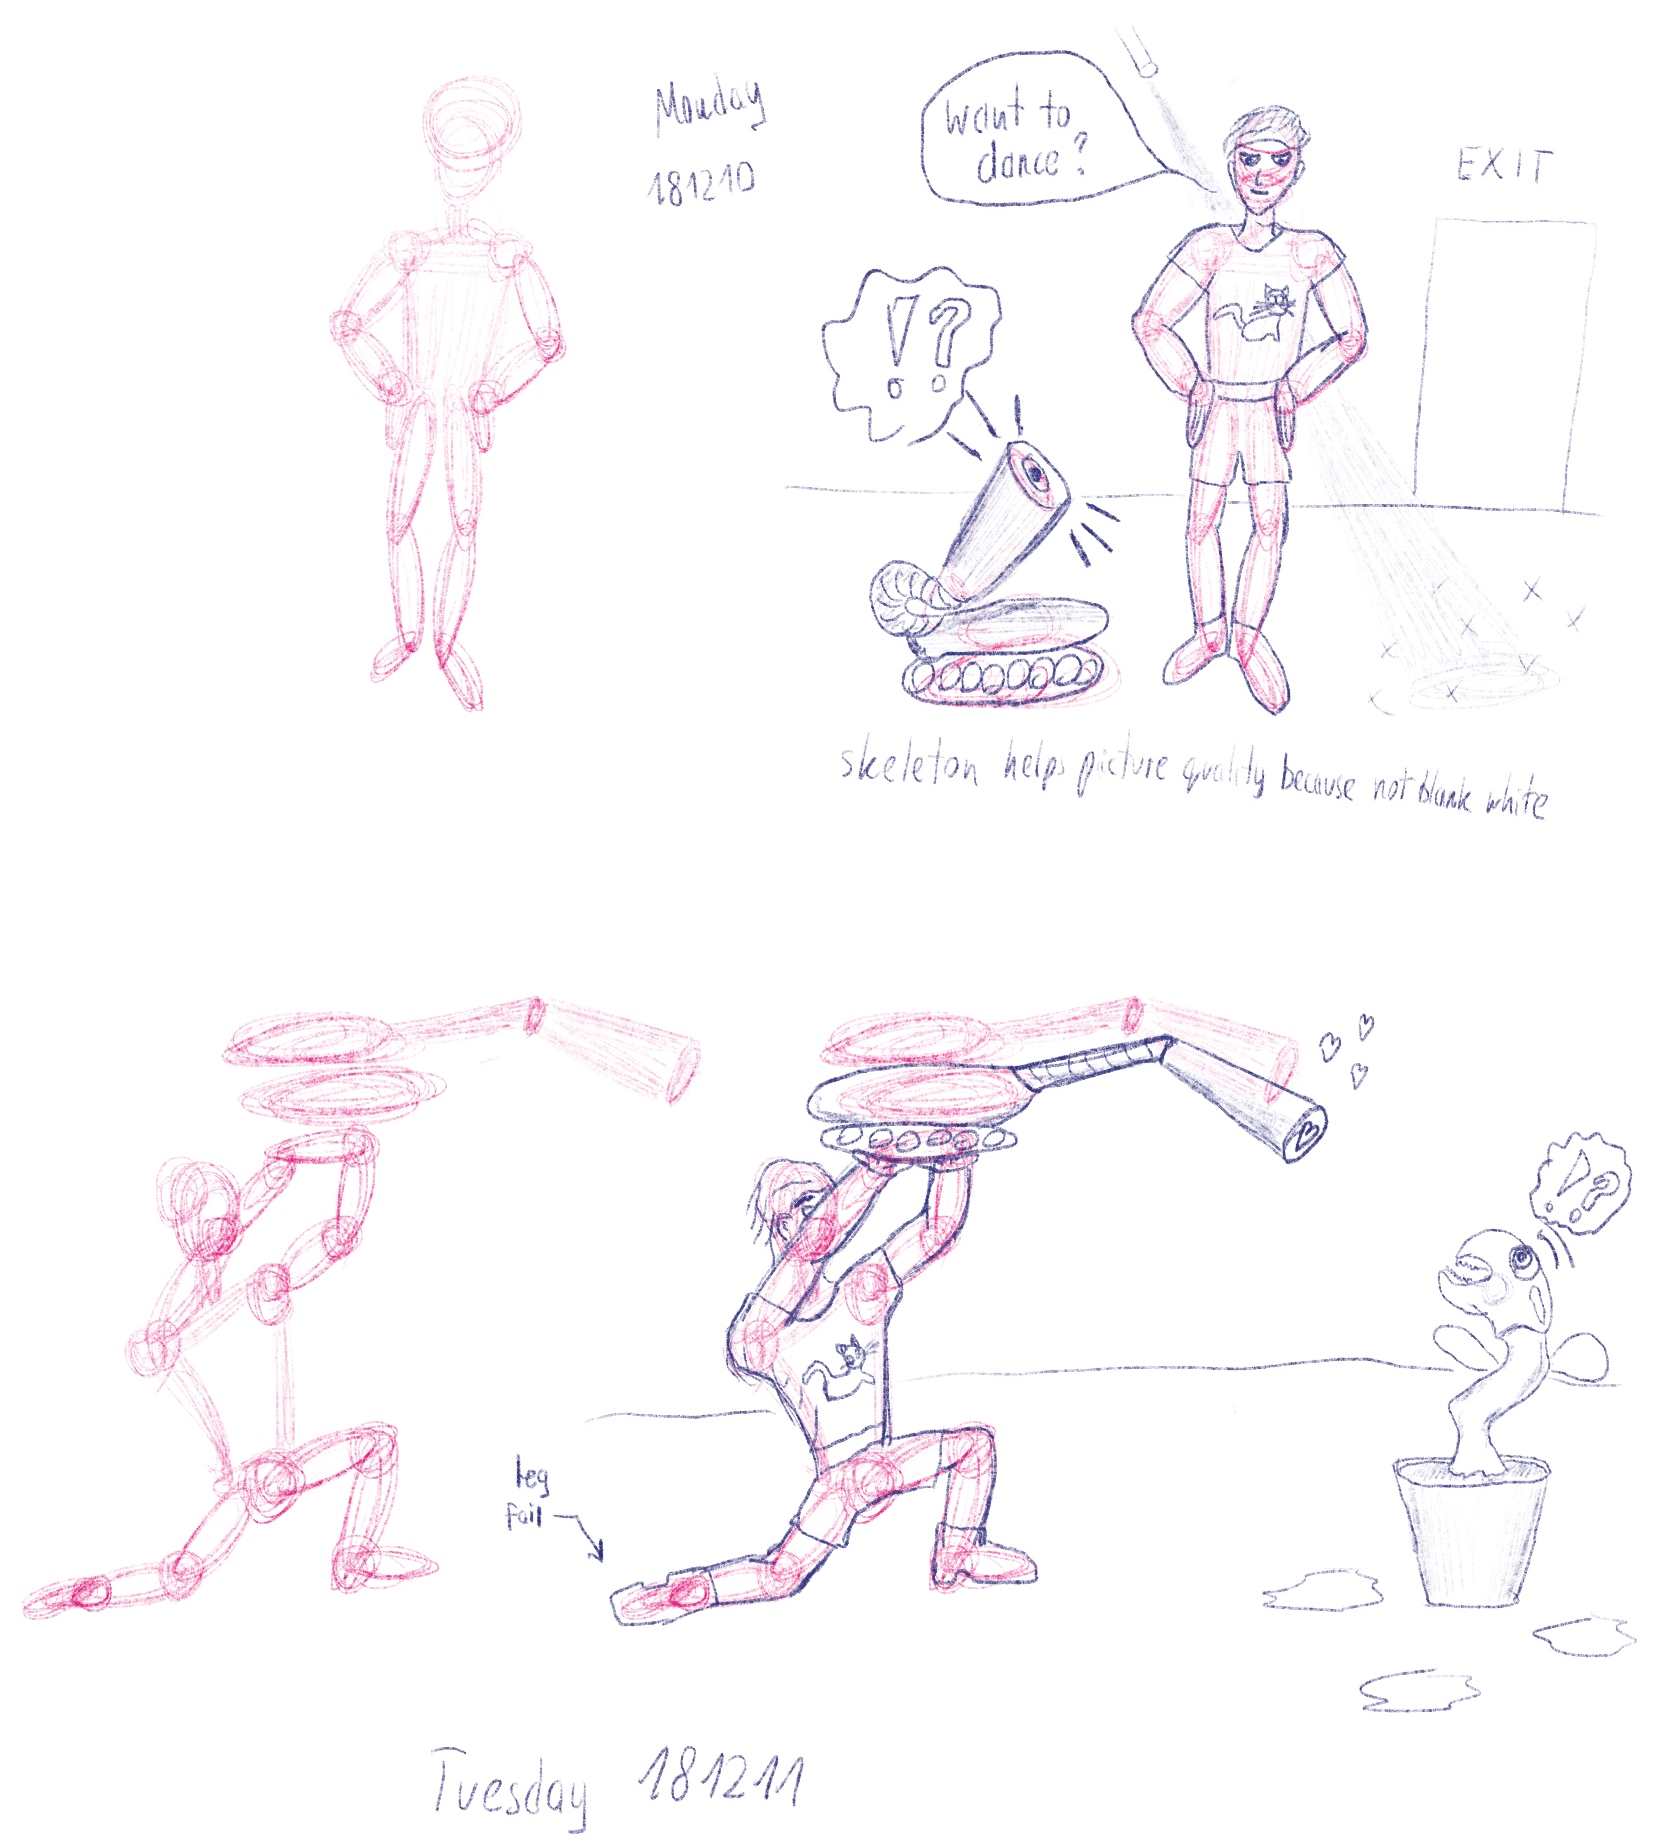 Monday
181210
want to
dance?
EXIT
!?
skeleton helps picture quality because not blank white
!?
Leg
fail
Tuesday 181211